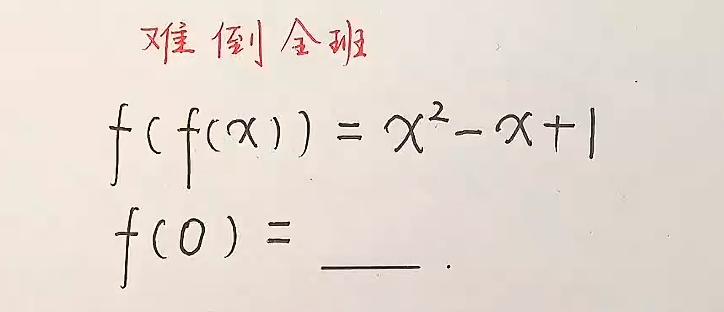 难倒全班
f(f(x)) = x² - x + 1
f(0) = ____.